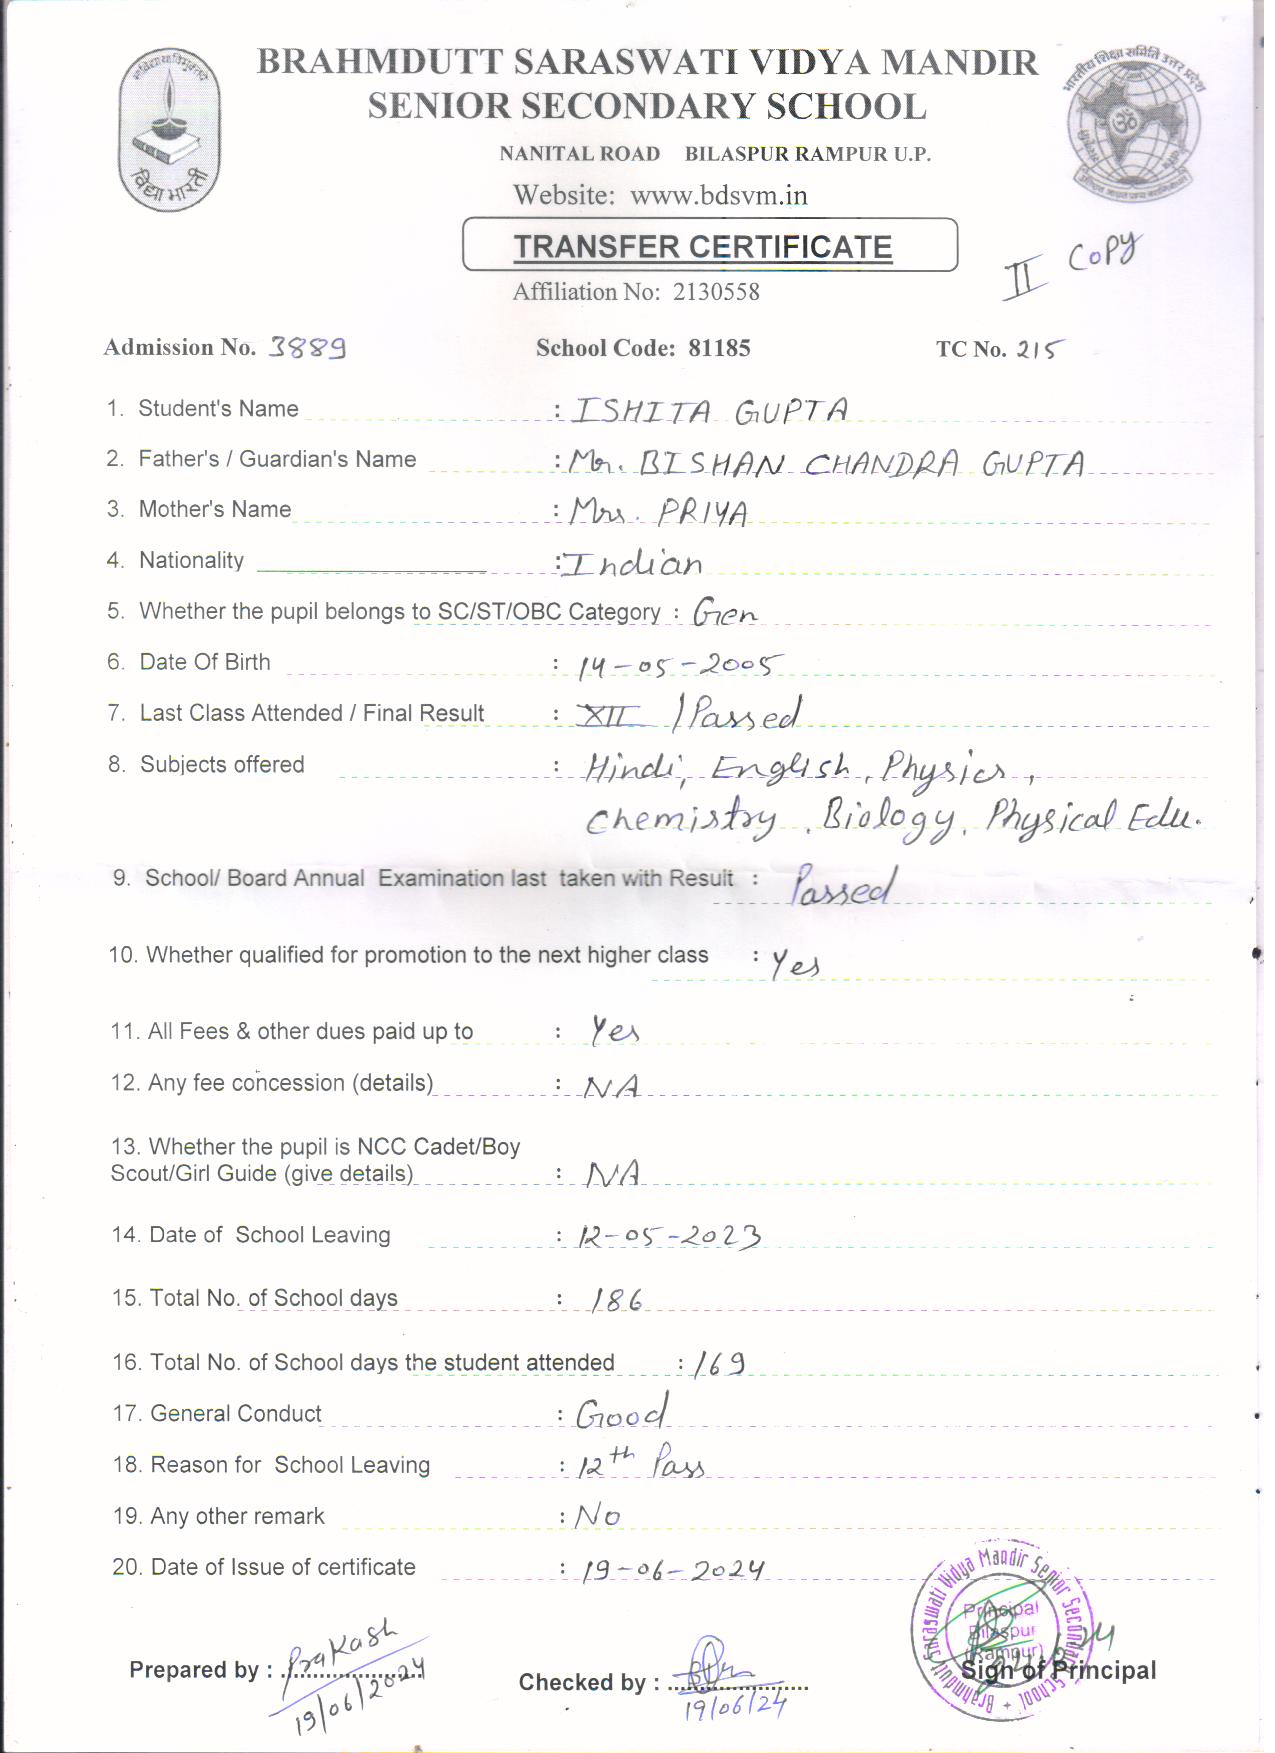 BRAHMDUTT SARASWATI VIDYA MANDIR
SENIOR SECONDARY SCHOOL
NANITAL ROAD BILASPUR RAMPUR U.P.
Website: www.bdsvm.in
विद्या भारती
भारतीय शिक्षा समिति उत्तर प्रदेश
TRANSFER CERTIFICATE
II COPY
Affiliation No: 2130558
Admission No. 3889 School Code: 81185 TC No. 215
1. Student's Name : ISHITA GUPTA
2. Father's / Guardian's Name : Mr. BISHAN CHANDRA GUPTA
3. Mother's Name : Mrs. PRIYA
4. Nationality : Indian
5. Whether the pupil belongs to SC/ST/OBC Category : Gen
6. Date Of Birth : 14-05-2005
7. Last Class Attended / Final Result : XII / Passed
8. Subjects offered : Hindi, English, Physics,
Chemistry, Biology, Physical Edu.
9. School/ Board Annual Examination last taken with Result : Passed
10. Whether qualified for promotion to the next higher class : Yes
11. All Fees & other dues paid up to : Yes
12. Any fee concession (details) : NA
13. Whether the pupil is NCC Cadet/Boy
Scout/Girl Guide (give details) : NA
14. Date of School Leaving : 12-05-2023
15. Total No. of School days : 186
16. Total No. of School days the student attended : 169
17. General Conduct : Good
18. Reason for School Leaving : 12th Pass
19. Any other remark : No
20. Date of Issue of certificate : 19-06-2024
Brahmdutt Saraswati Vidya Mandir Senior Secondary School
Principal
Bilaspur
(Rampur)
Prepared by : Prakash
19/06/2024
Checked by :
19/06/24
Sign of Principal